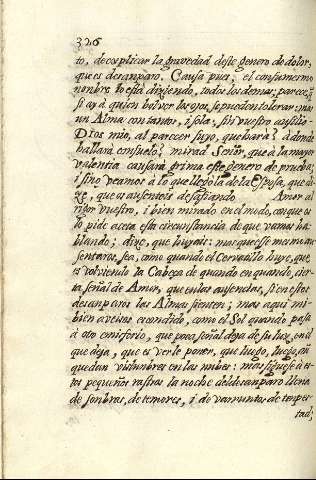 326
to, de explicar la gravedad deste genero de dolor,
que es desanparo. Causa pues, el consumesmo
nonbre lo está diziendo, todos los demas; parece, q̃
si ay á quien bolver los ojos, se pueden tolerar: mas
un Alma con tantos, i sola; sin vuestro auxilio
Dios mio, al parecer suyo, que hará? á donde
hallará consuelo? mirad Señor, que á la mayor
valentia causará grima este genero de prueba;
i sino veamos á lo que llegó la de la Esposa, que di-
ze, que os ausenteis desafiando Amor al
rigor vuestro, i bien mirado en el modo, con que os
lo pide aceta esta circunstancia de que vamos ha-
blando; dize, que huyais: mas que esse mesmo au-
sentaros, sea, como quando el Cervatillo huye, que
es volviendo la Cabeça de quando en quando, cier-
ta señal de Amor, que en las ausencias, si en estos
desanparos las Almas sienten; mas aqui mi
bien aveisos escondido, como el Sol quando passa
á otro emisferio, que poca señal deja de su luz, en el
que deja, que es verle poner, que luego, luego, aũ
quedan vislumbres en las nubes: mas siguese á es-
tos pequeños rastros la noche del desanparo llena
de sonbras, de temores, i de varruntos de tenpes-
tad;